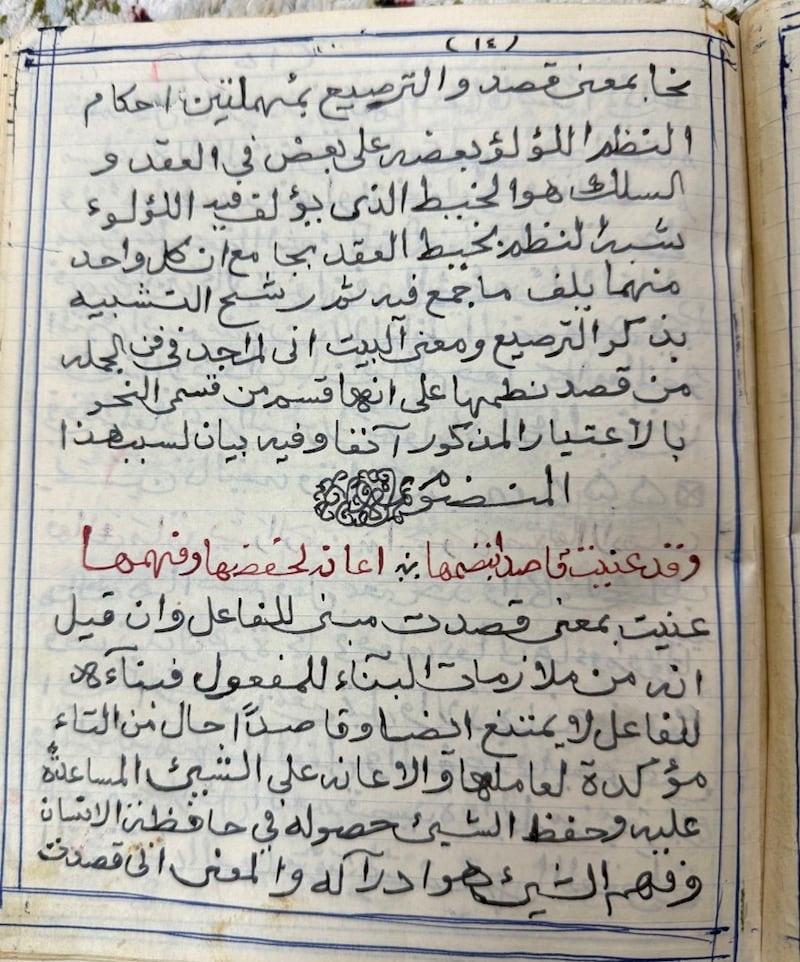 (١٤)
نحا بمعنى قصد والترصيع بمهملتين احكام
النظم اللؤلؤ بعضه على بعض في العقد و
السلك هو الخيط الذى يؤلف فيه اللؤلوء
شبه النظم بخيط العقد بجامع ان كل واحد
منهما يلف ما جمع فيه ثم رشح التشبيه
بذكر الترصيع ومعنى البيت انى لم اجد فى فن الجمله
من قصد نظمها على انها قسم من قسمى النحو
بالاعتبار المذكور آنفا وفيه بيان لسبب هذا
المنضوم
وقد عنيت قاصدا بنضمها اعانه لحفضها وفهمها
عنيت بمعنى قصدت مبنى للفاعل وان قيل
انه من ملازمات البنآء للمفعول فبنآءه
للفاعل لا يمتنع ايضا وقاصدًا حال من التاء
مؤكدة لعاملها والاعانه على الشيئ المساعدة
عليه وحفظ الشيئ حصوله في حافظة الانسان
وفهم الشيئ هو ادرآكه والمعنى انى قصدت